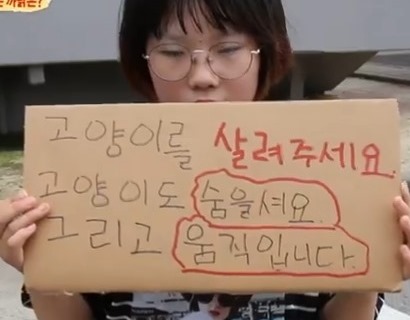 는 까닭은?
고양이를 살려주세요.
고양이도 숨을셔요.
그리고 움직입니다.